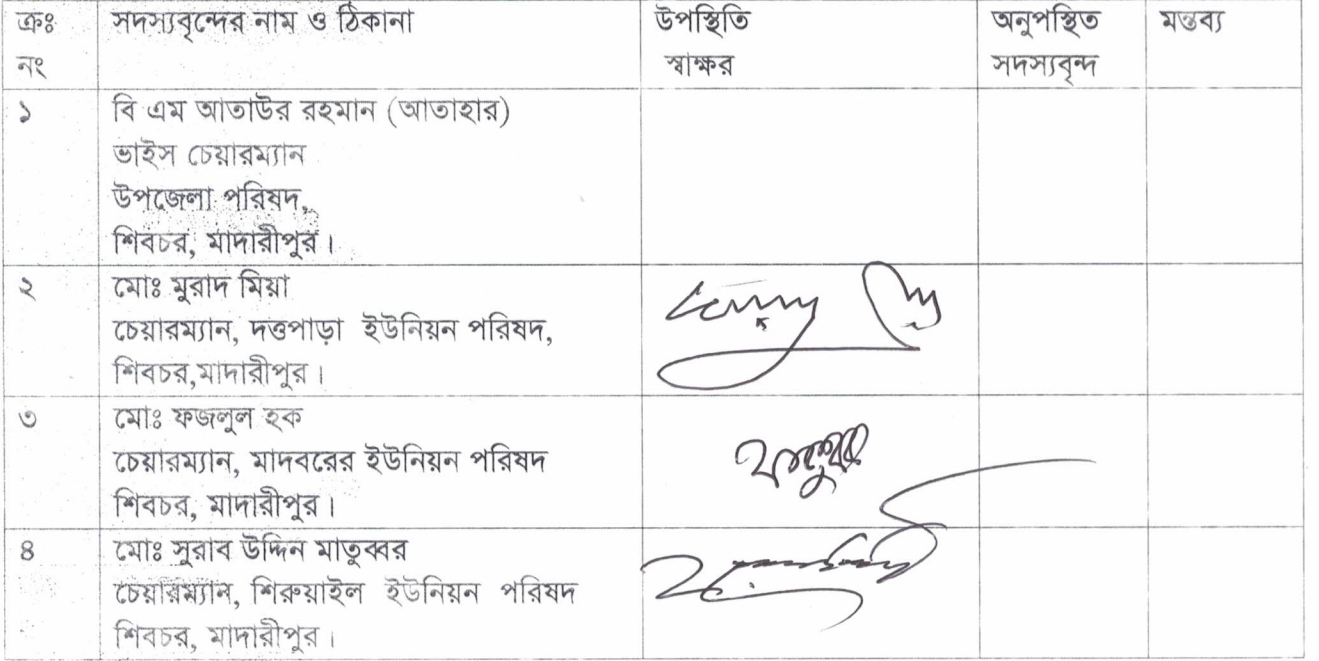 ক্রঃ নং সদস্যবৃন্দের নাম ও ঠিকানা উপস্থিতি স্বাক্ষর অনুপস্থিত সদস্যবৃন্দ মন্তব্য
১ বি এম আতাউর রহমান (আতাহার)
ভাইস চেয়ারম্যান
উপজেলা পরিষদ,
শিবচর, মাদারীপুর।
২ মোঃ মুরাদ মিয়া
চেয়ারম্যান, দত্তপাড়া ইউনিয়ন পরিষদ,
শিবচর,মাদারীপুর।
৩ মোঃ ফজলুল হক
চেয়ারম্যান, মাদবরের ইউনিয়ন পরিষদ
শিবচর, মাদারীপুর।
৪ মোঃ সুরাব উদ্দিন মাতুব্বর
চেয়ারম্যান, শিরুয়াইল ইউনিয়ন পরিষদ
শিবচর, মাদারীপুর।